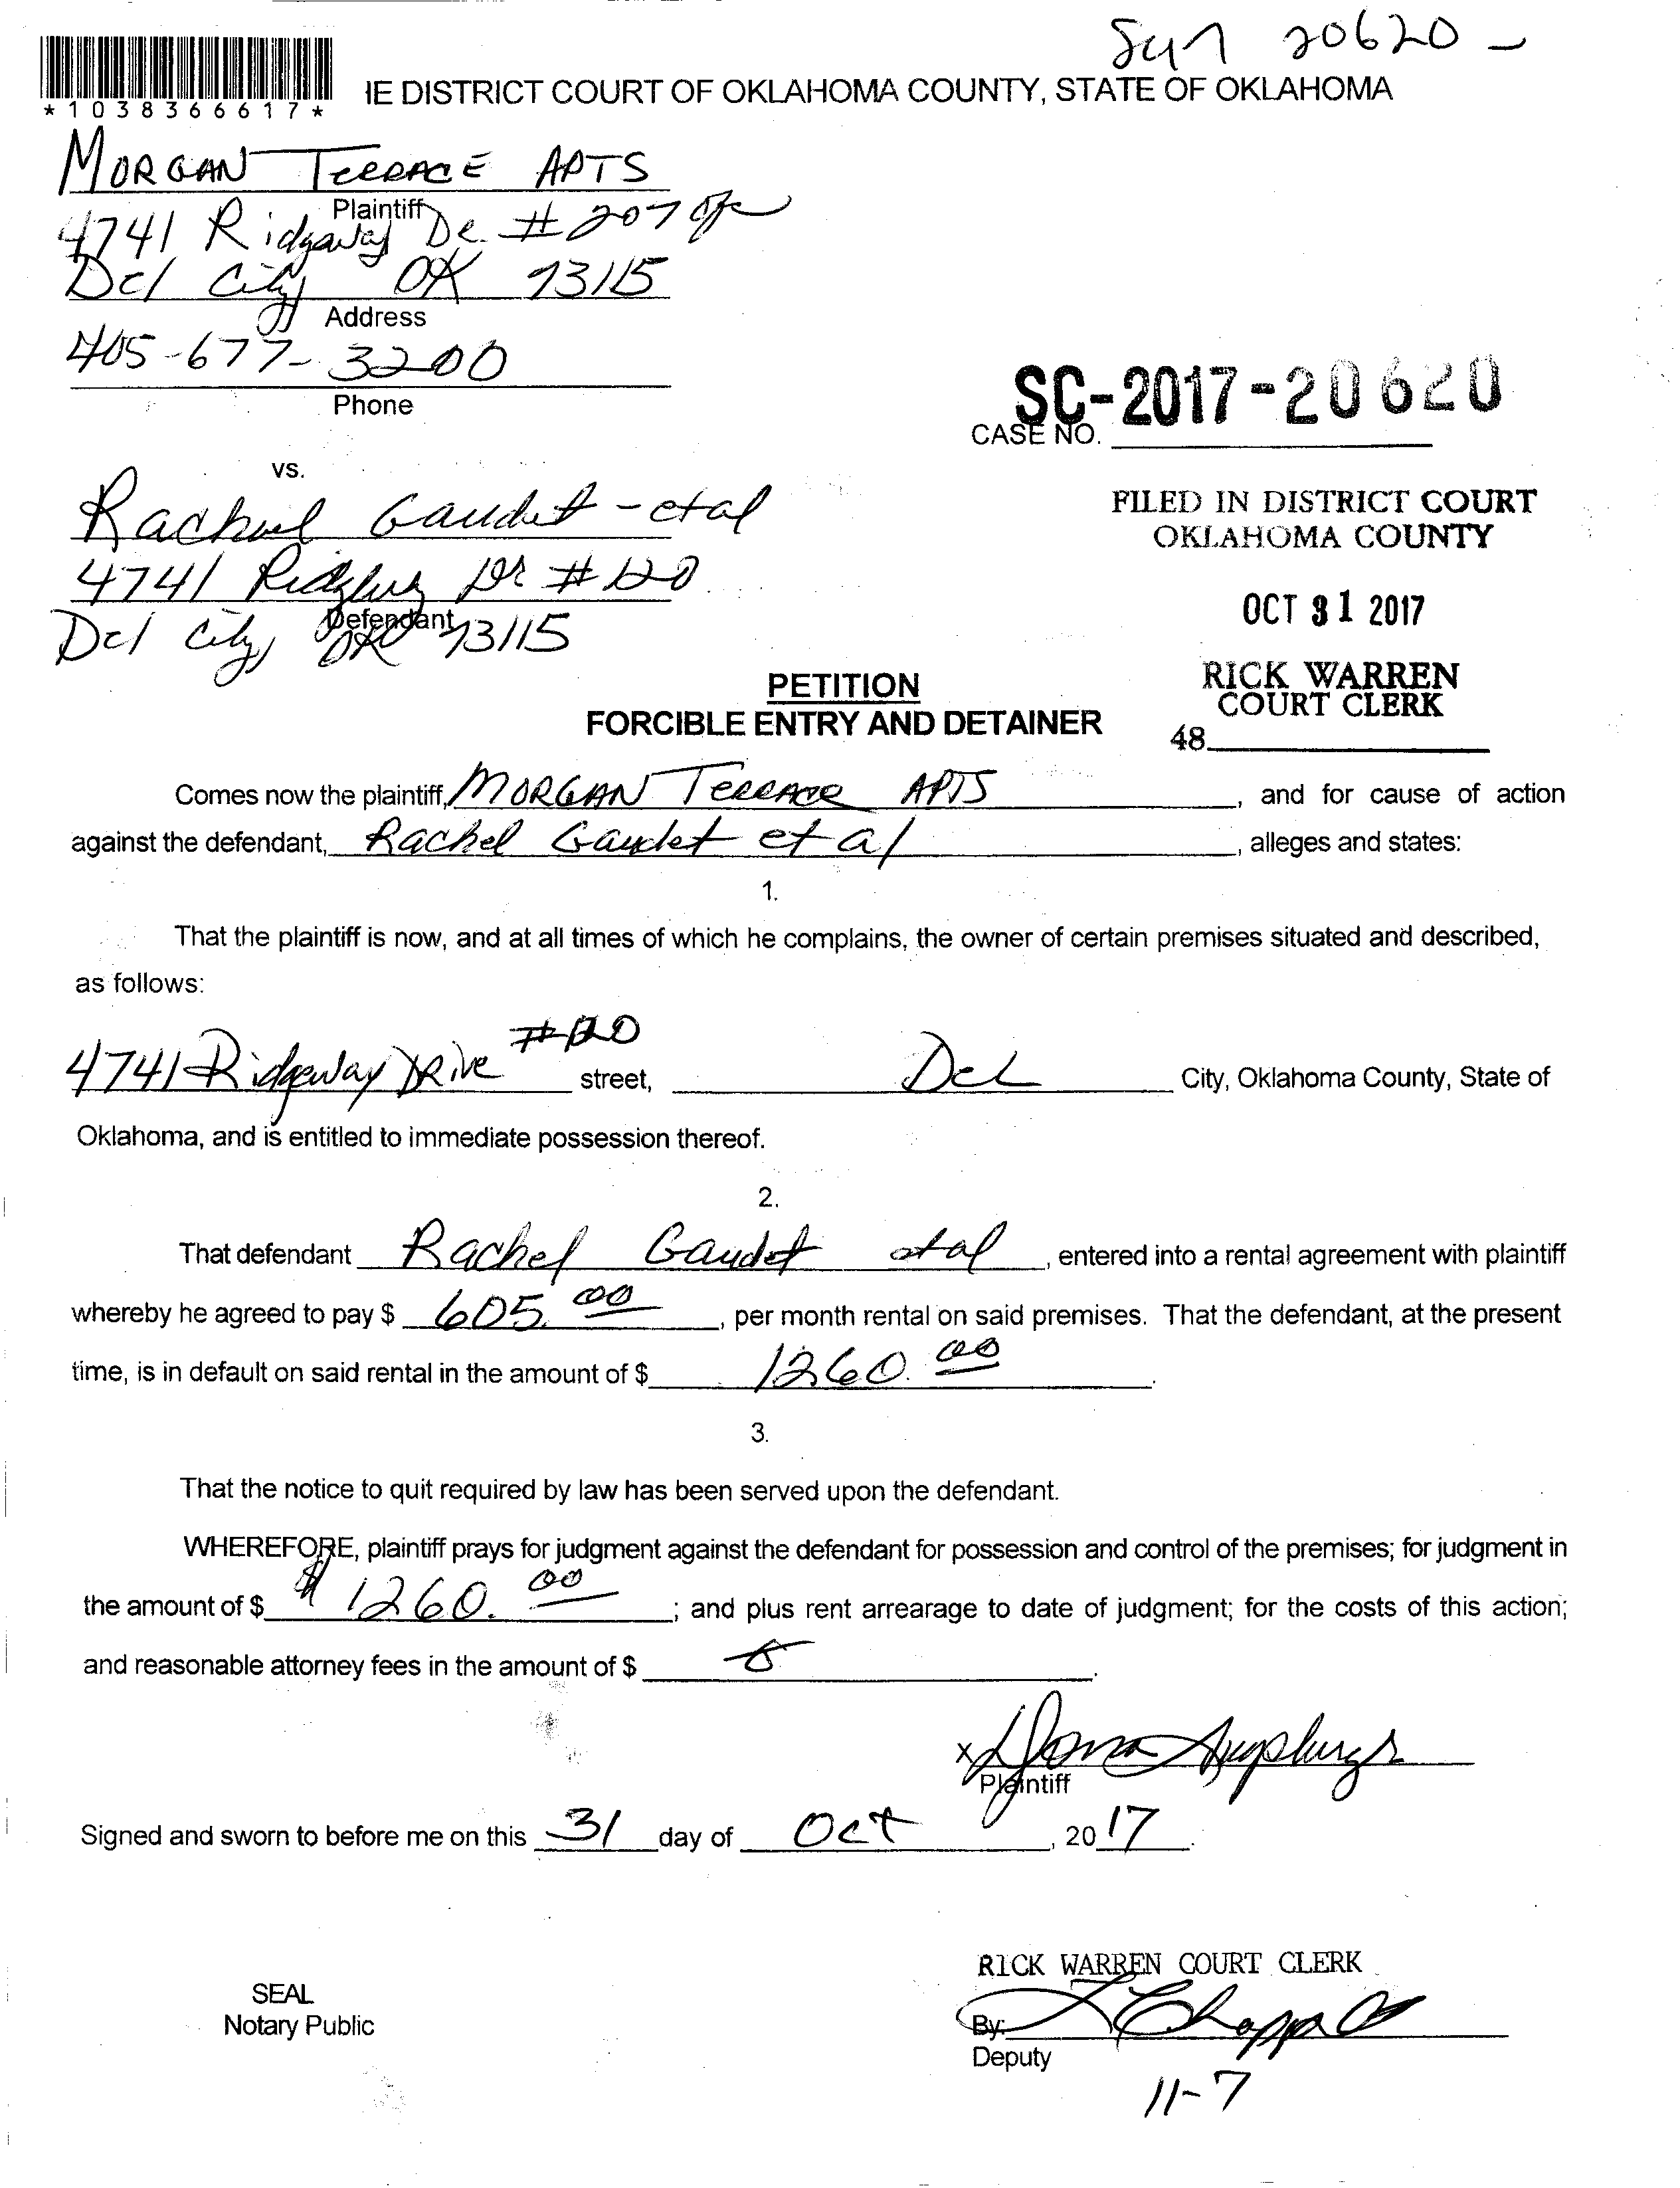 20620 -
*1038366617*
IE DISTRICT COURT OF OKLAHOMA COUNTY, STATE OF OKLAHOMA
MORGAN TERRACE APTS
Plaintiff
4741 Ridgeway DR. # 207 ofc
Del City OK 73115
Address
405-677-3200
Phone
SC-2017-20620
CASE NO.
vs.
Rachel Gaudet - etal
4741 DR # 120
Defendant
Del City, OK 73115
FILED IN DISTRICT COURT
OKLAHOMA COUNTY
OCT 31 2017
RICK WARREN
COURT CLERK
48
PETITION
FORCIBLE ENTRY AND DETAINER
Comes now the plaintiff, MORGAN TERRACE APTS, and for cause of action
against the defendant, Rachel Gaudet et al, alleges and states:
1.
That the plaintiff is now, and at all times of which he complains, the owner of certain premises situated and described,
as follows:
4741 Ridgeway DRive #120 street, Del City, Oklahoma County, State of
Oklahoma, and is entitled to immediate possession thereof.
2.
That defendant Rachel Gaudet etal, entered into a rental agreement with plaintiff
whereby he agreed to pay $ 605.00, per month rental on said premises. That the defendant, at the present
time, is in default on said rental in the amount of $ 1260.00.
3.
That the notice to quit required by law has been served upon the defendant.
WHEREFORE, plaintiff prays for judgment against the defendant for possession and control of the premises; for judgment in
the amount of $ $1260.00; and plus rent arrearage to date of judgment; for the costs of this action;
and reasonable attorney fees in the amount of $.
x
Plaintiff
Signed and sworn to before me on this 31 day of Oct, 2017.
RICK WARREN COURT CLERK
SEAL
Notary Public
By:
Deputy
11-7